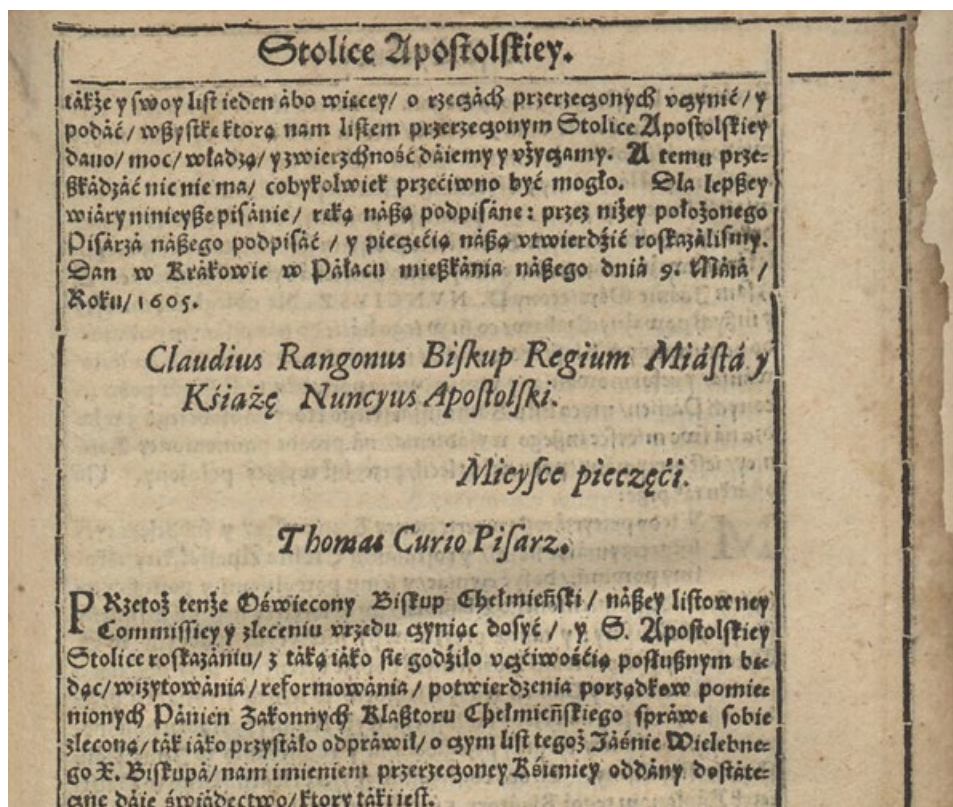 Stolice Apoſtolſkiey.
tákże y ſwoy liſt ieden ábo więcey/ o rzeczách przerzeczonych vczynić/ y
podáć/ wßyſtkę ktorą nam liſtem przerzeczonym Stolice Apoſtolſkiey
dano/ moc/ władzą/ y zwierzchność dáiemy y vżyczamy. A temu prze⸗
ßkádzáć nic nie ma/ cobykolwiek przećiwno być mogło. Dla lepßey
wiáry ninieyße piſánie/ ręką náßą podpiſáne: przez niżey położonego
Piſárzá náßego podpiſáć / y pieczęćią náßą vtwierdźić roſkazáliſmy.
Dan w Krákowie w Páłacu mießkánia náßego dniá 9. Máiá /
Roku/ 1605.
Claudius Rangonus Biſkup Regium Miáſtá y
Kśiażę Nuncyus Apoſtolſki.
Mieyſce pieczęći.
Thomas Curio Piſarz.
PRzetoż tenże Oświecony Biſkup Chełmieńſki / náßey liſtowney
Commiſſiey y zleceniu vrzędu czyniąc dosyć / y S. Apoſtolſkiey
Stolice roſkazániu/ z táką iáko ſie godźiło vczćiwośćią poſłußnym bę⸗
dąc/ wizytowánia / reformowánia / potwierdzenia porządkow pomie⸗
nionych Pánien Zakonnych Klaßtoru Chełmieńſkiego ſpráwę ſobie
zleconą/ ták iáko przyſtáło odpráwił/ o czym liſt tegoż Jáśnie Wielebne⸗
go X. Biſkupá/ nam imieniem przerzeczoney Kśieniey oddány doſtáte⸗
czne dáie świádectwo/ ktory táki ieſt.